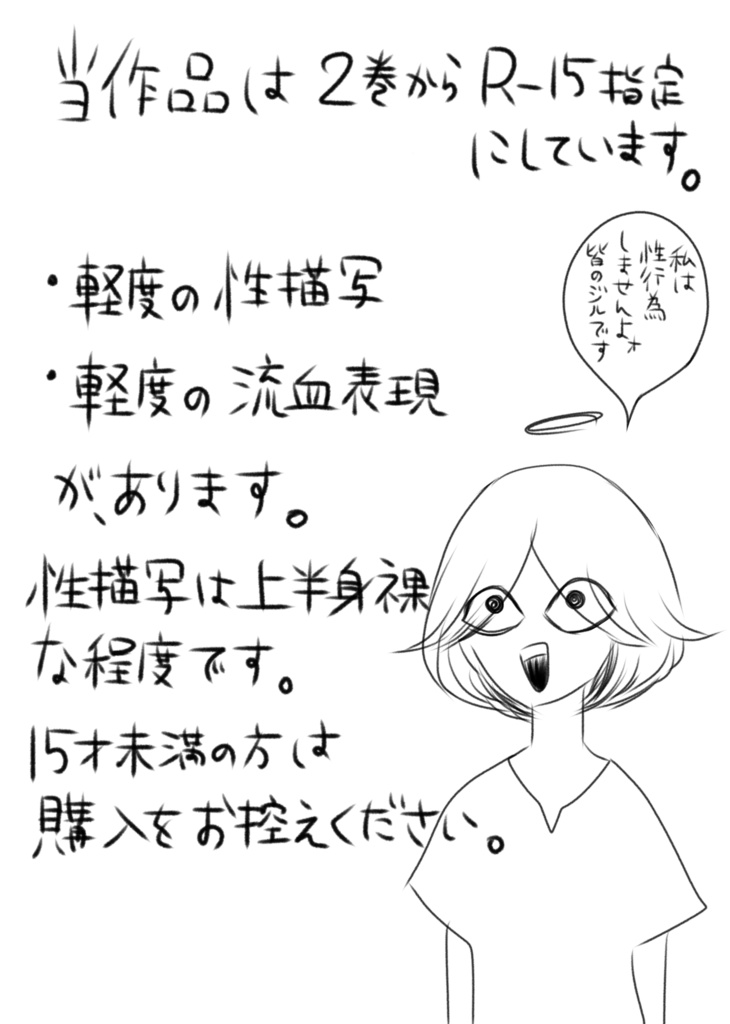 当作品は2巻からR-15指定
にしています。
・軽度の性描写
・軽度の流血表現
が、あります。
性描写は上半身裸
な程度です。
15才未満の方は
購入をお控えください。
私は
性行為
しませんよォ
皆のジルです